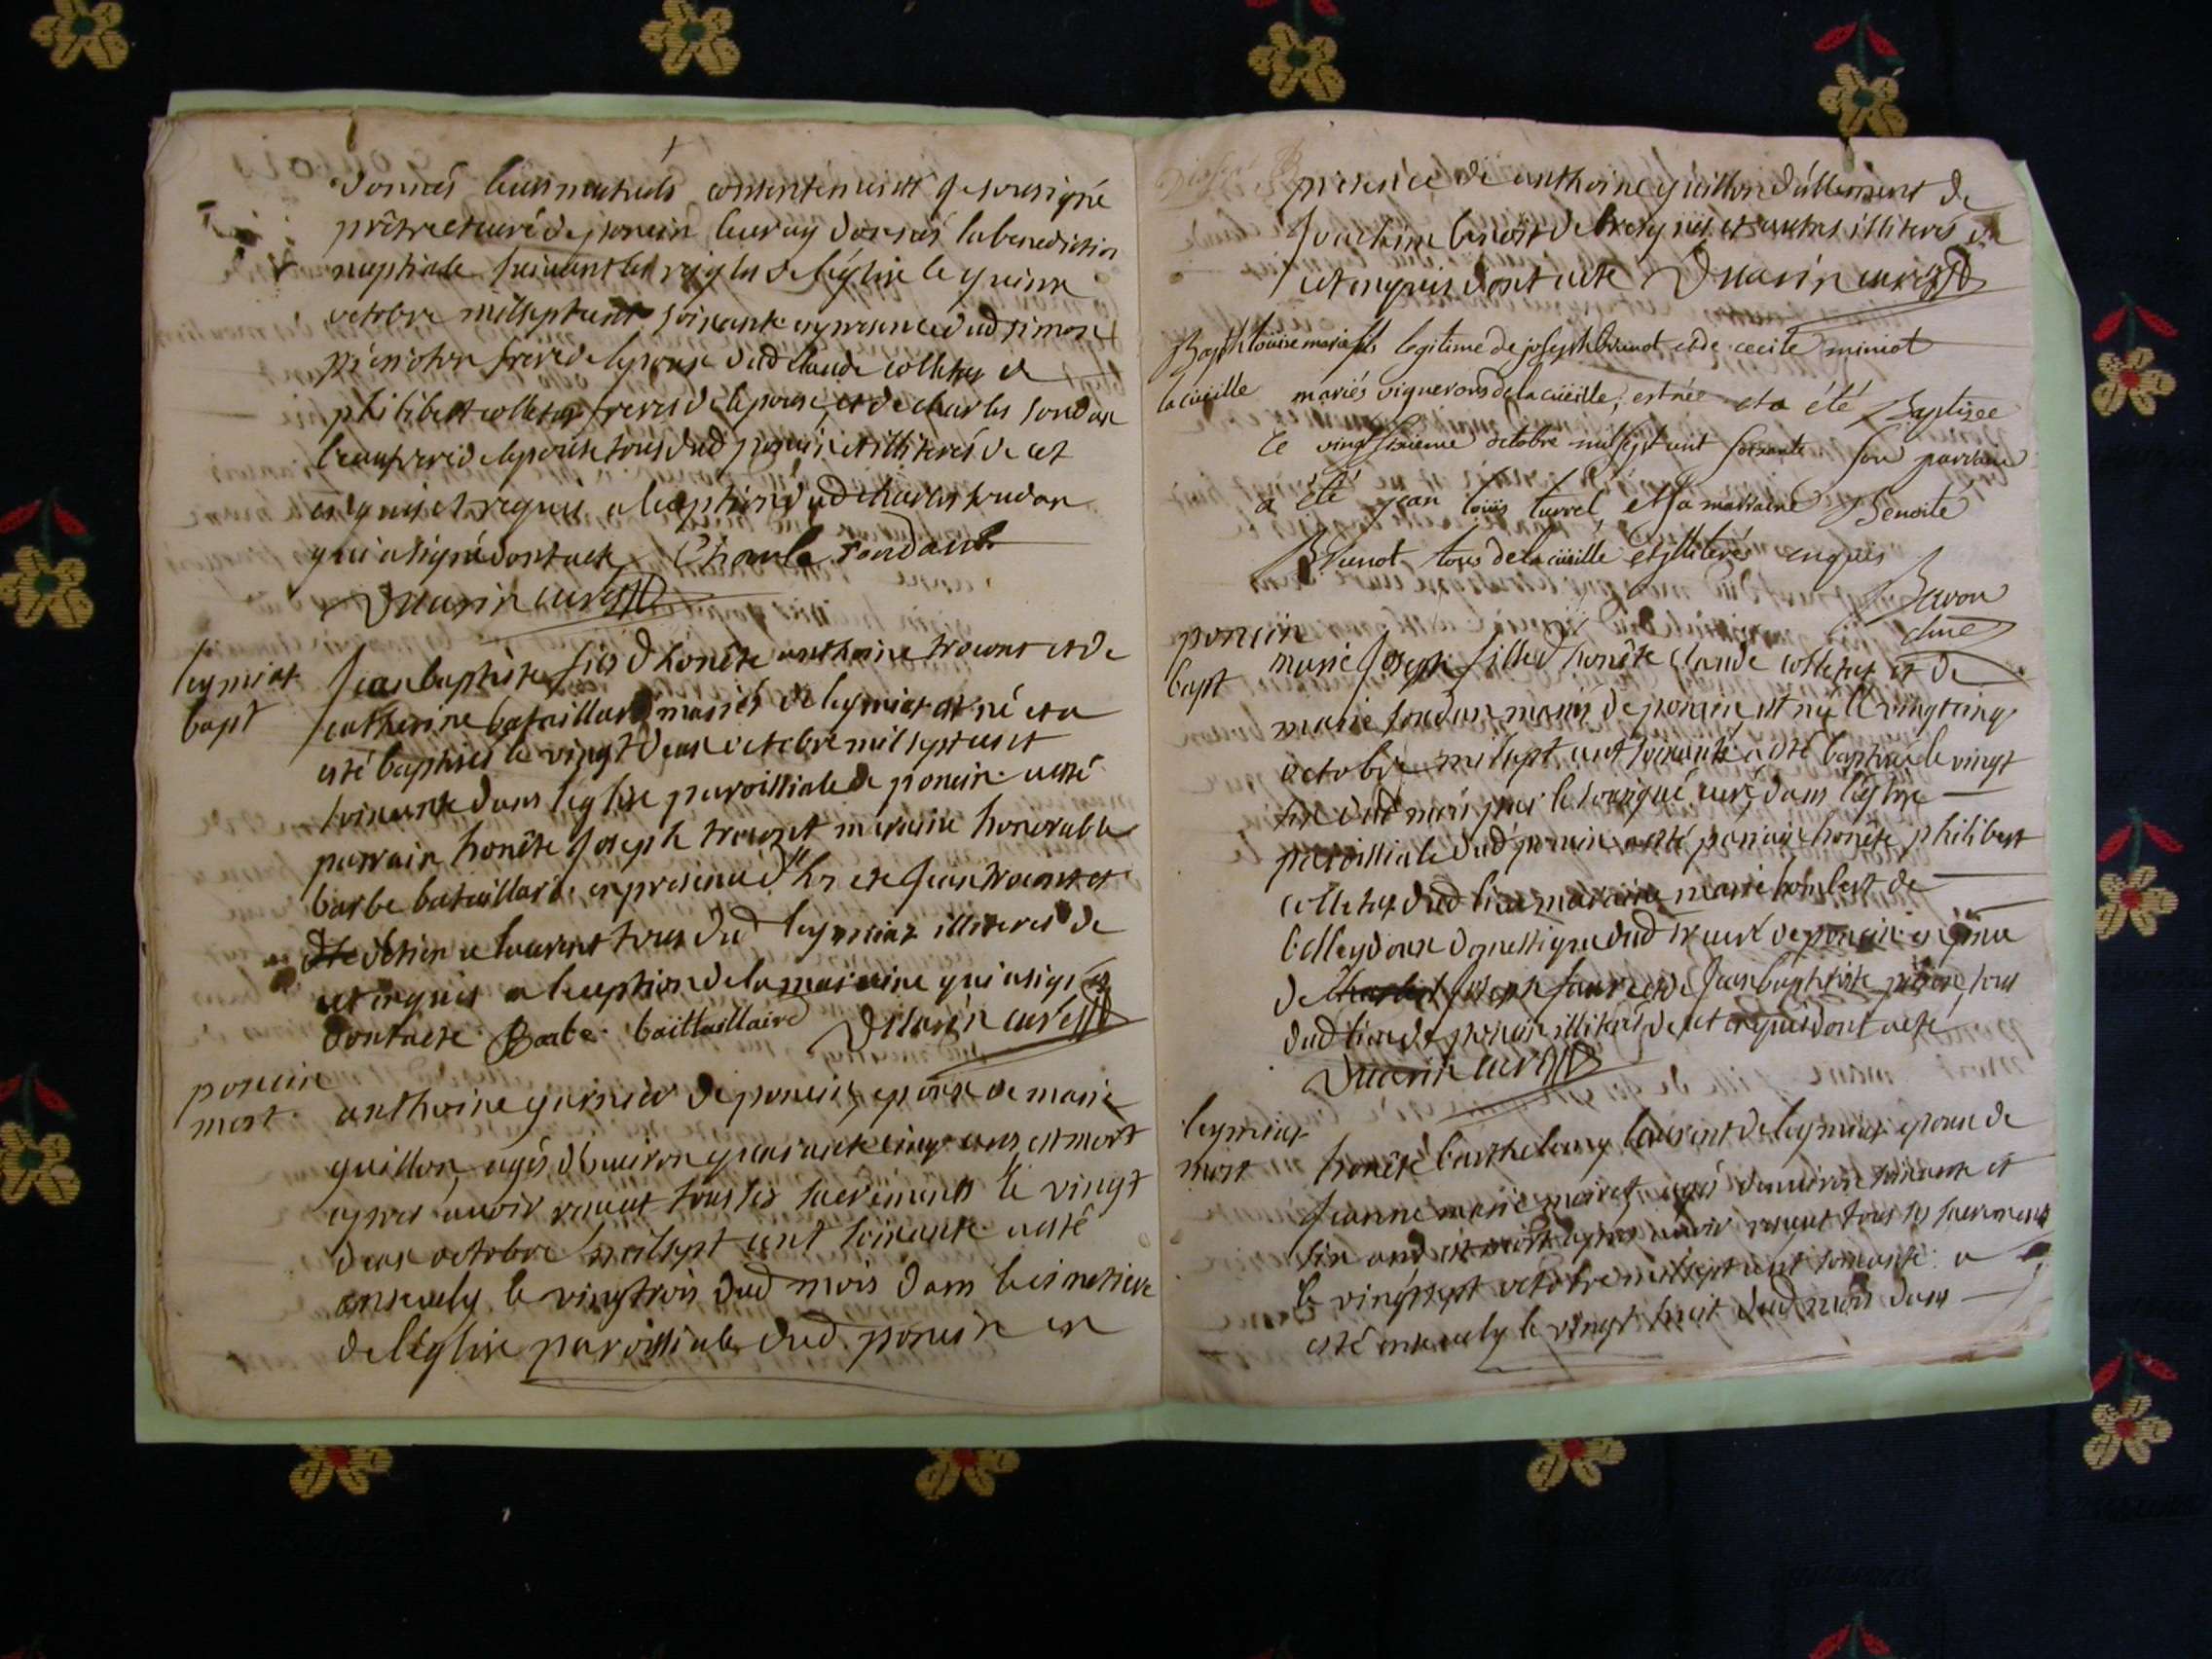 donnés leurs mutuels consentements Je sousigné
prêtre et curé de poncin leur ay donnés la benediction
nuptiale suivant les reigles de l'église le quinze
octobre mil sept cent soixante en presence dud simon
frere de lepoux dud claude colletaz de
philibert colletaz freres de lepouse, et de charles sondan
beaufrere de lepouse tous dud poncin et illiterés de cet
enquis et requis a leception dud charles sondan
qui a signé dont acte Charle sondan
Duarin curé
leymiat
bapt
Jean baptiste fils d'honête anthoine trocont et de
catherine bataillard mariés de leymiat est né et a
esté baptisés le vingt deux octobre mil sept cent
soixante dans leglise paroissiale de poncin a esté
parrain honête Joseph trocont maraine honorable
barbe bataillard en presence d'h Jean trocont et
détienne laurent tous dud leymiat illiteres de
cet enquis a leception de la maraine qui a signés
dont acte Barbe baittaillaird Duarin curé
poncin
mort
anthoine garnier de poncin, epoux de marie
guillon, agés d'environ quarante cinq ans, est mort
apres avoir receut tous les sacrements le vingt
deux octobre mil sept cent soixante a esté
ensevely le vingt trois dud mois dans le cimetiere
de l'église paroissiale dud poncin en
presence de anthoine guillon d'allement de
Joachim benoit de breignes et autres illiterés de
cet enquis dont acte Duarin curé
Bapt louise marie fils legitime de joseph brunot et de cecile miniot
la cüeille mariés vignerons de la cüeille, est née et a été Baptizee
le vingt sixieme octobre mil sept cent soixante son parrain
a été jean loüis turrel et sa marraine Benoite
Brunot tous de la cüeille et illiterés enquis
Savon
curé
poncin
bapt
marie Joseph fille d'honête claude colletaz et de
marie sondan mariés de poncin est née le vingt cinq
octobre mil sept cent soixante a esté baptisée le vingt
six dud mois par le sousigné curé dans l'église
paroissiale dud poncin a esté parrain honête philibert
colletaz dud lieu maraine marie humbert de
domestique dud sr curé de poncin en pnce
de Joseph faure et de Jean baptiste tous
dud lieu de poncin illiterés de cet enquis dont acte
Duarin curé
leymiat
mort
honête barthelemy laurent de leymiat epoux de
Jeanne marie moiret, agés denviron soixante et
six ans est mort apres avoir receut tous les sacrements
le vingt sept octobre mil sept cent soixante a
esté ensevely le vingt huit dud mois dans